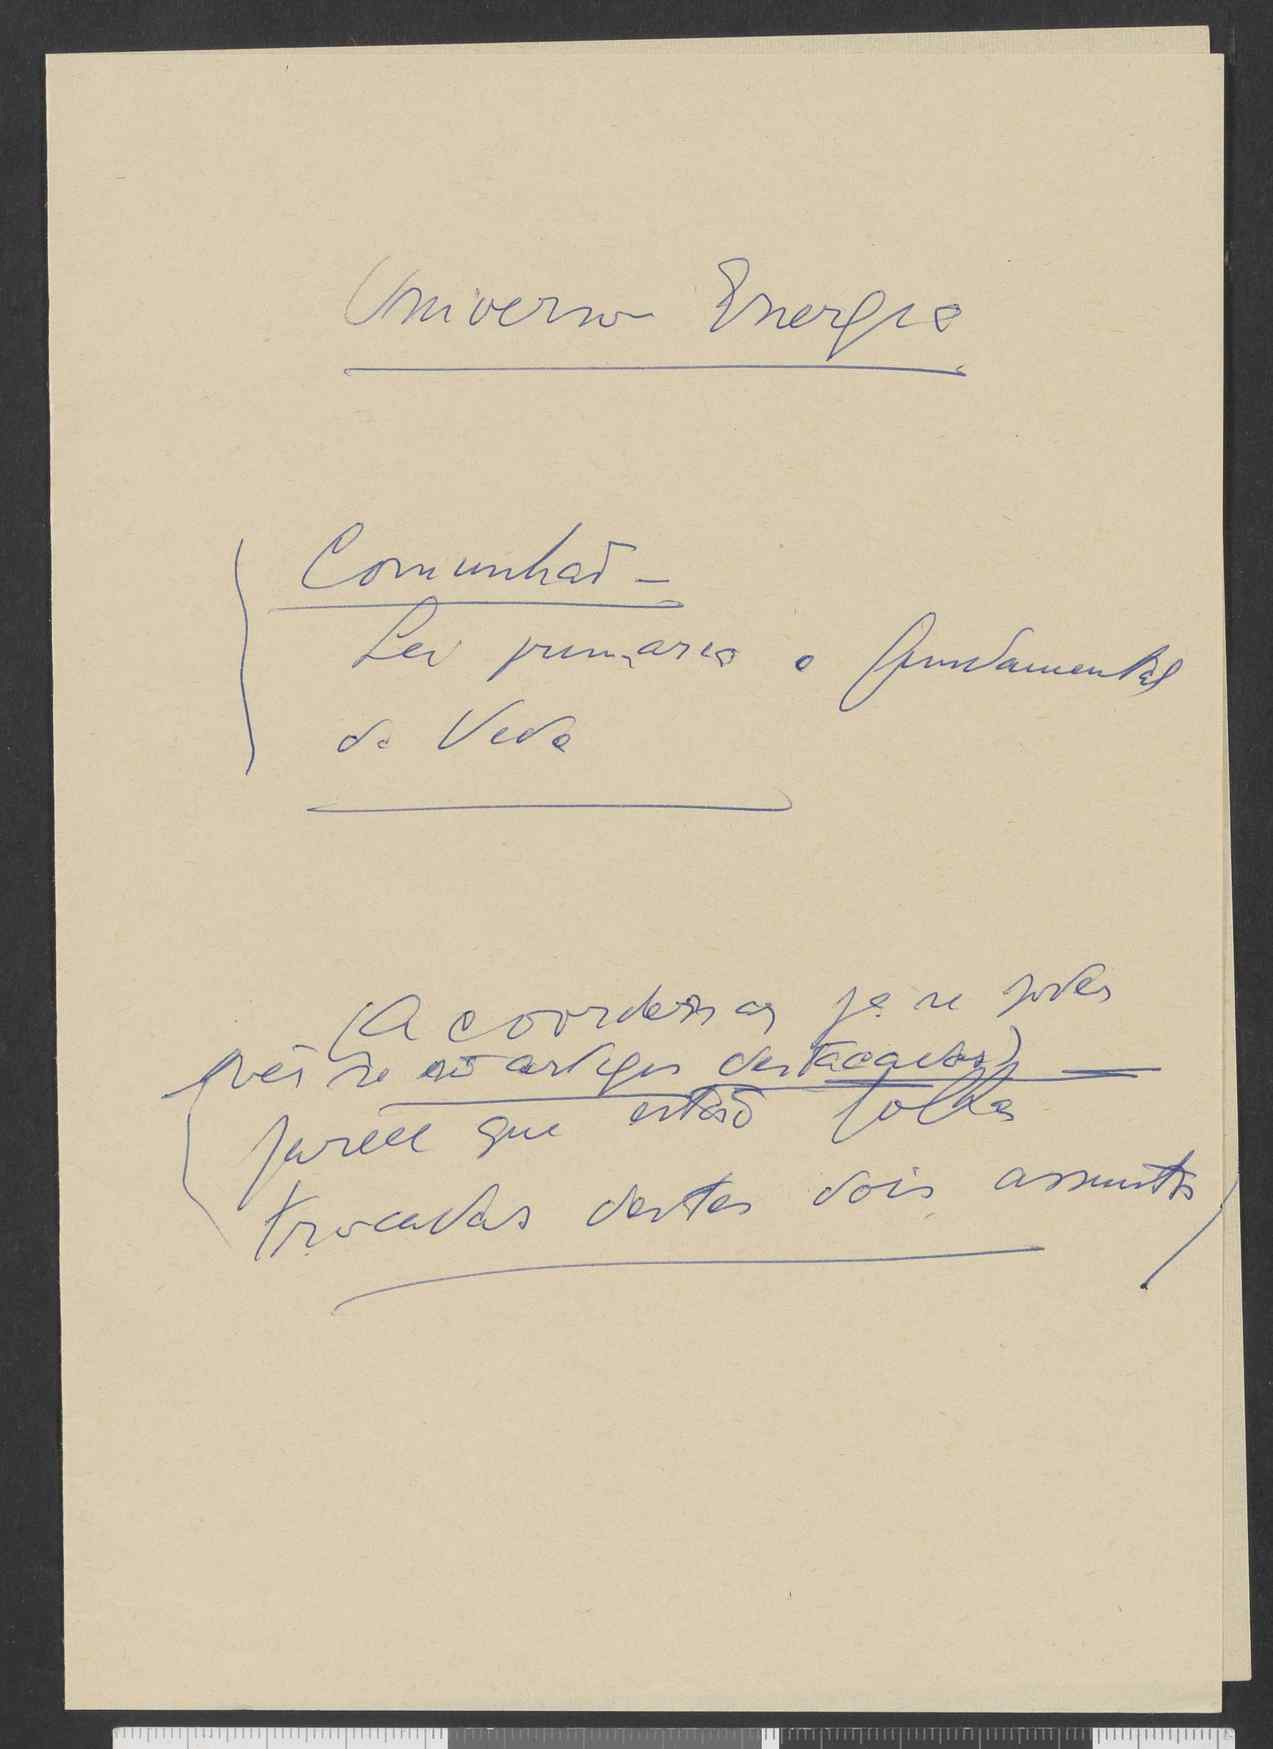 Universo Energia
Comunhão -
Lei primaria e fundamental
da Vida
(A coordenar
ver se são artigos destacados)
parece que estão folhas
trocadas destes dois assuntos)